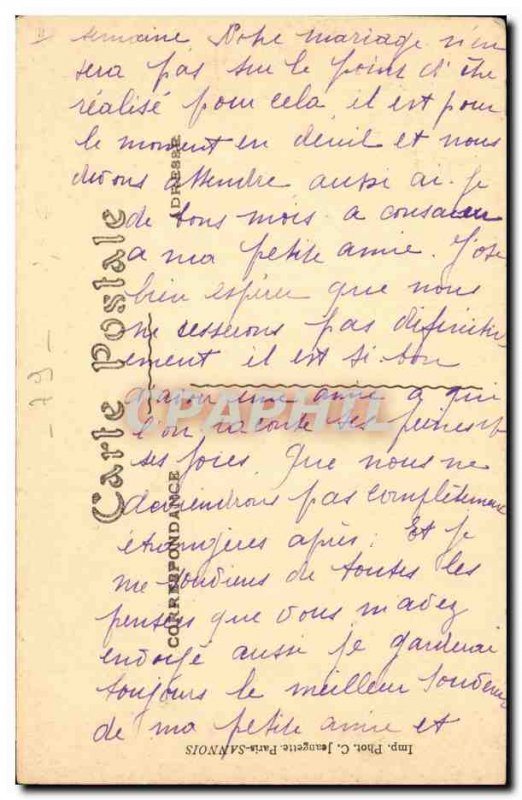 II
semaine. Notre mariage n'en
sera pas sur le point d'être
réalisé pour cela il est pour
le moment en deuil et nous
devons attendre aussi ai-je
de bons mois a consacrer
a ma petite amie. J'ose
bien espérer que nous
ne cesserons pas définitiv
ement il est si bon
d'avoir une amie a qui
l'on raconte ses peines et
ses joies. Que nous ne
deviendrons pas complètement
étrangères après; Et je
me souviens de toutes les
pensées que vous m'avez
envoyé aussi je garderai
toujours le meilleur souvenir
de ma petite amie et
Carte Postale
CORRESPONDANCE
ADRESSE
Imp. Phot. C. Jeangette. Paris-SANNOIS
- 79 -
CPAPHIL